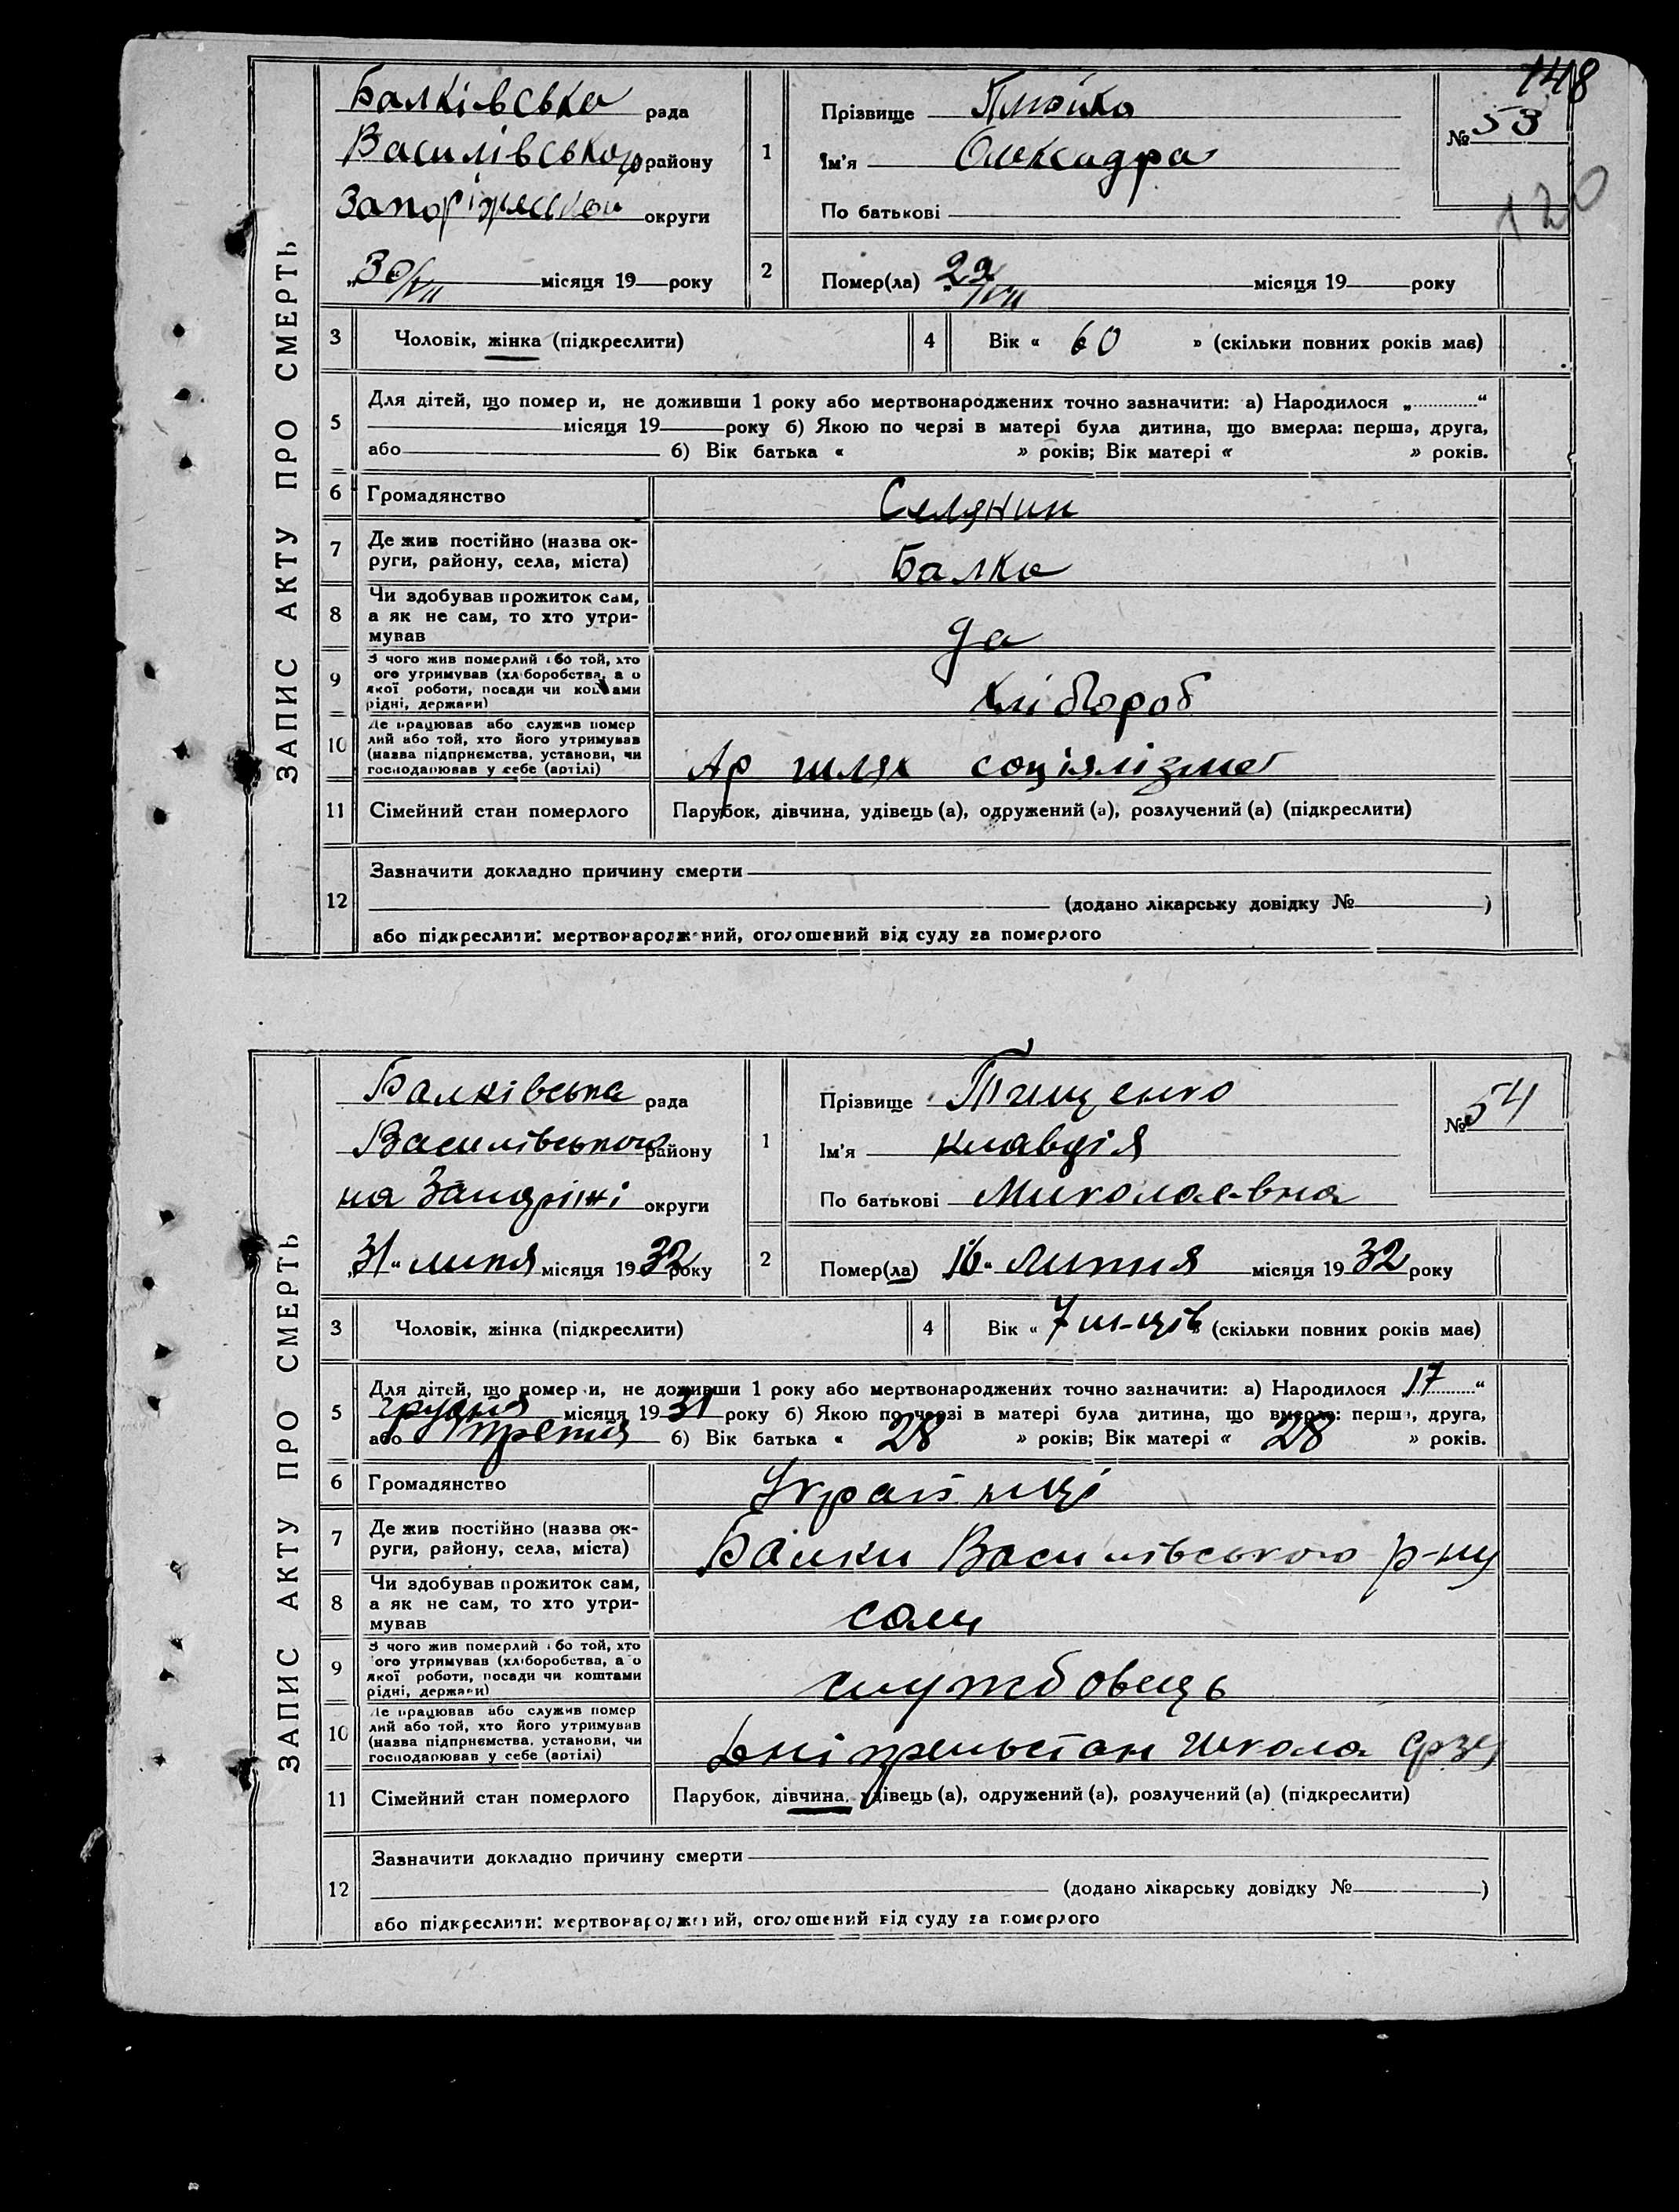 148
Балківська рада
Василівського району
Запоріжської округи
„30/VII місяця 19 року
1 Прізвище
Ім'я Олександра
По батькові
№ 53
120
2 Помер(ла) „29/VII місяця 19 року
ЗАПИС АКТУ ПРО СМЕРТЬ
3 Чоловік, жінка (підкреслити)
4 Вік « 60 » (скільки повних років має)
5 Для дітей, що помер и, не доживши 1 року або мертвонароджених точно зазначити: а) Народилося „ “
місяця 19 року б) Якою по черзі в матері була дитина, що вмерла: перша, друга,
або б) Вік батька « » років; Вік матері « » років.
6 Громадянство Селянин
7 Де жив постійно (назва ок-
руги, району, села, міста) Балка
8 Чи здобував прожиток сам,
а як не сам, то хто утри-
мував да
9 З чого жив померлий або той, хто
ого утримував (хліборобства, а о
якої роботи, посади чи коштами
рідні, держави) хлібороб
10 Де працював або служив помер
лий або той, хто його утримував
(назва підприємства, установи, чи
господарював у себе (артілі) Ар шлях соціялізма
11 Сімейний стан померлого Парубок, дівчина, удівець (а), одружений (а), розлучений (а) (підкреслити)
12 Зазначити докладно причину смерти
(додано лікарську довідку № )
або підкреслити: мертвонароджений, оголошений від суду за померлого
Балківська рада
Василівського району
на Запоріжі округи
„31“ липня місяця 1932 року
1 Прізвище Тищенко
Ім'я Клавдія
По батькові Миколаевна
№ 54
2 Помер(ла) „16“ липня місяця 1932 року
ЗАПИС АКТУ ПРО СМЕРТЬ
3 Чоловік, жінка (підкреслити)
4 Вік « 7 м-ців » (скільки повних років має)
5 Для дітей, що помер и, не доживши 1 року або мертвонароджених точно зазначити: а) Народилося „17“
грудня місяця 1931 року б) Якою по черзі в матері була дитина, що вмерла: перша, друга,
або третя б) Вік батька « 28 » років; Вік матері « 28 » років.
6 Громадянство Українці
7 Де жив постійно (назва ок-
руги, району, села, міста) Балки Василівського р-ну
8 Чи здобував прожиток сам,
а як не сам, то хто утри-
мував сам
9 З чого жив померлий або той, хто
ого утримував (хліборобства, а о
якої роботи, посади чи коштами
рідні, держави) службовець
10 Де працював або служив помер
лий або той, хто його утримував
(назва підприємства, установи, чи
господарював у себе (артілі) Дніпрельстан школа ФЗУ
11 Сімейний стан померлого Парубок, дівчина, удівець (а), одружений (а), розлучений (а) (підкреслити)
12 Зазначити докладно причину смерти
(додано лікарську довідку № )
або підкреслити: мертвонароджений, оголошений від суду за померлого